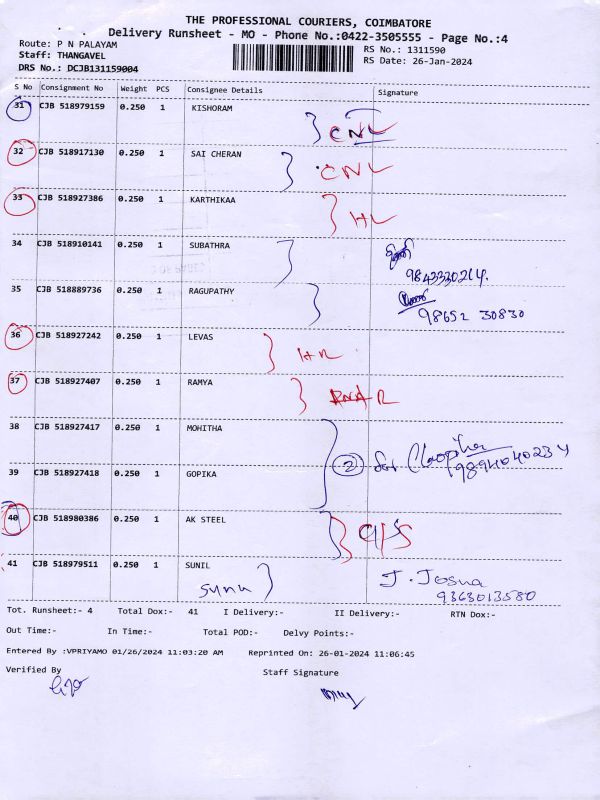 THE PROFESSIONAL COURIERS, COIMBATORE
Delivery Runsheet - MO - Phone No.:0422-3505555 - Page No.:4
Route: P N PALAYAM
RS No.: 1311590
Staff: THANGAVEL
RS Date: 26-Jan-2024
DRS No.: DCJB131159004
S No Consignment No Weight PCS Consignee Details Signature
31 CJB 518979159 0.250 1 KISHORAM
CNL
32 CJB 518917130 0.250 1 SAI CHERAN
CNL
33 CJB 518927386 0.250 1 KARTHIKAA
HL
34 CJB 518910141 0.250 1 SUBATHRA
9843330214.
35 CJB 518889736 0.250 1 RAGUPATHY
98652 30830
36 CJB 518927242 0.250 1 LEVAS
37 CJB 518927407 0.250 1 RAMYA
38 CJB 518927417 0.250 1 MOHITHA
2
9894040234
39 CJB 518927418 0.250 1 GOPIKA
40 CJB 518980386 0.250 1 AK STEEL
41 CJB 518979511 0.250 1 SUNIL
J. Josua
9363013580
Tot. Runsheet:- 4 Total Dox:- 41 I Delivery:- II Delivery:- RTN Dox:-
Out Time:- In Time:- Total POD:- Delvy Points:-
Entered By :VPRIYAMO 01/26/2024 11:03:20 AM Reprinted On: 26-01-2024 11:06:45
Verified By
Staff Signature